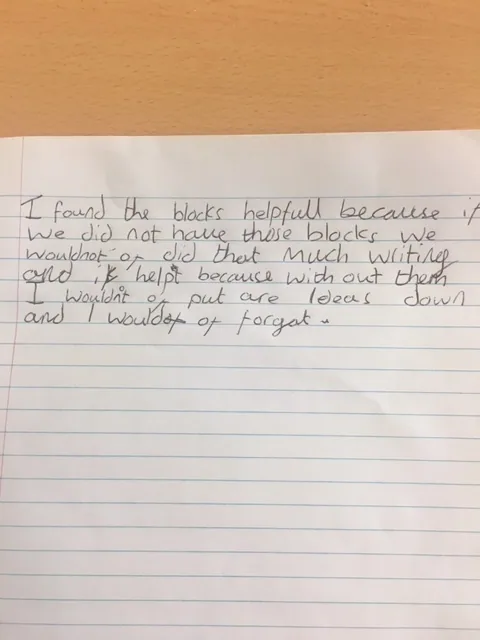 I found the blocks helpfull because if
we did not have those blocks we
wouldnot of did that much writing
and it helpt because with out them
I wouldn't of put are Ideas down
and I would of forgat.